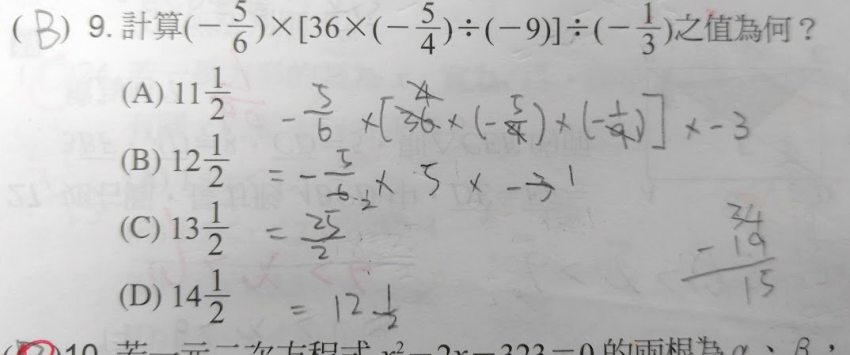 (B) 9. 計算(−5/6)×[36×(−5/4)÷(−9)]÷(−1/3)之值為何？
(A) 11 1/2
(B) 12 1/2
(C) 13 1/2
(D) 14 1/2
− 5/6 × [36 × (− 5/4) × (− 1/9)] × −3
4
= − 5/6 × 5 × −3
2 1
= 25/2
= 12 1/2
34
− 19
15
)10. 若一元二次方程式 x²−2x−323=0 的兩根為 α、β，